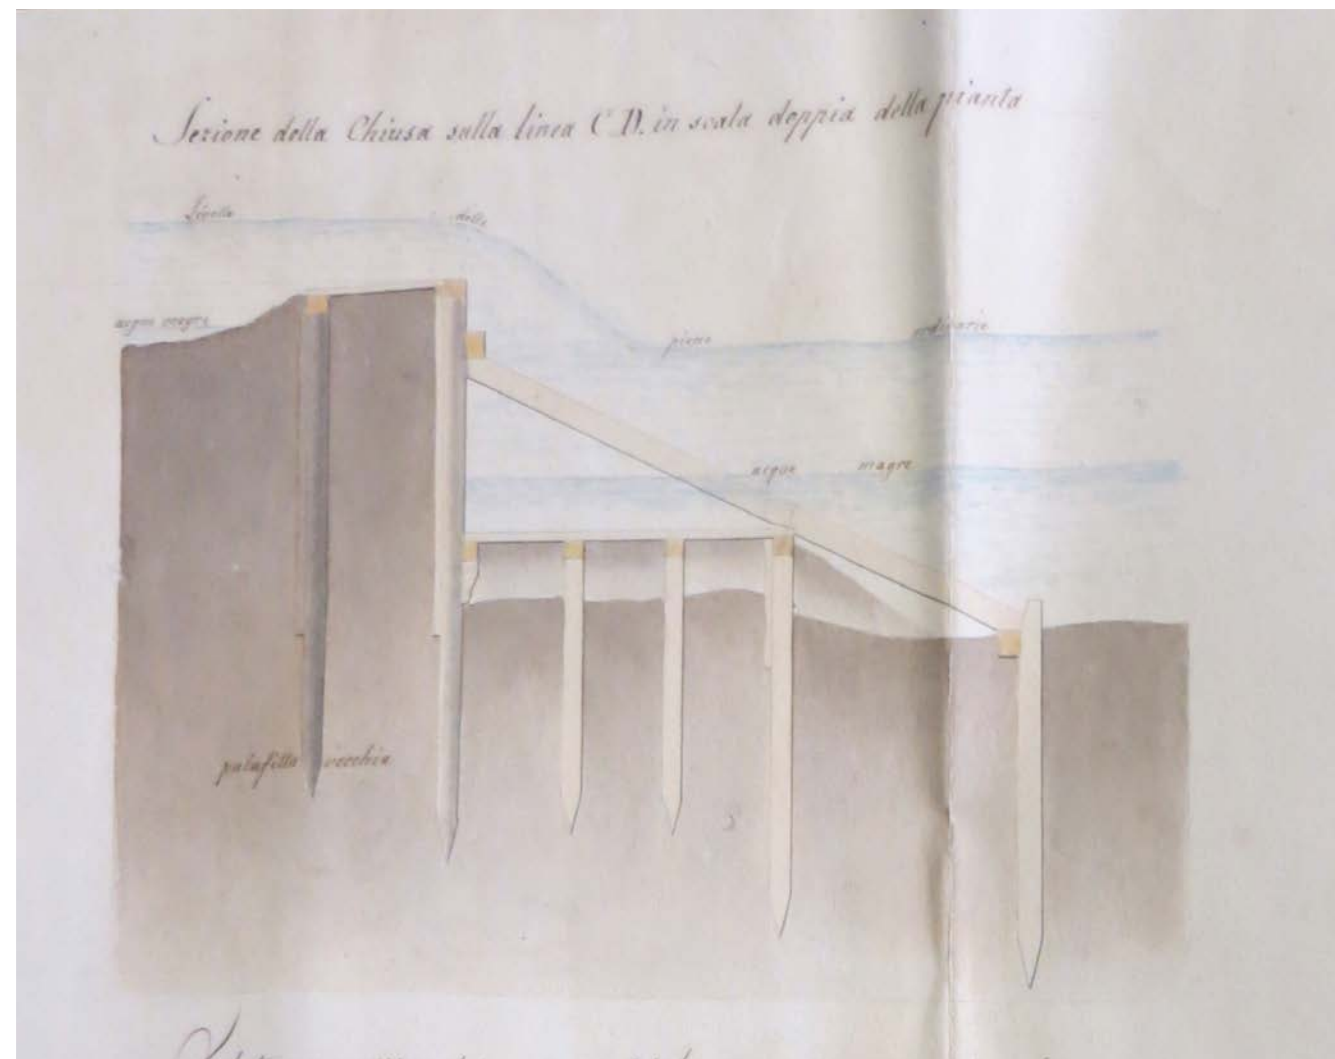 Sezione della Chiusa sulla linea C D. in scala doppia della pianta
Livello delle piene ordinarie
acque magre
acque magre
palafitta vecchia